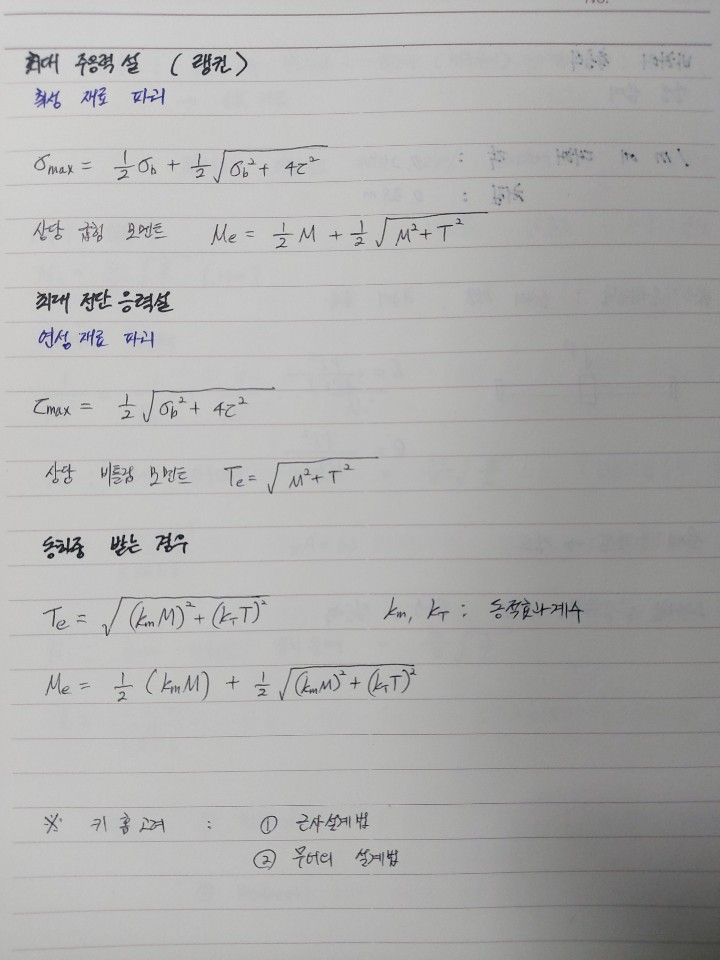 최대 주응력설 (랭킨)
취성 재료 파괴
σmax = 1/2 σb + 1/2 √(σb² + 4τ²)
상당 굽힘 모멘트 Me = 1/2 M + 1/2 √(M² + T²)
최대 전단 응력설
연성 재료 파괴
τmax = 1/2 √(σb² + 4τ²)
상당 비틀림 모멘트 Te = √(M² + T²)
동하중 받는 경우
Te = √((km M)² + (kT T)²) km, kT : 동적효과계수
Me = 1/2 (km M) + 1/2 √((km M)² + (kT T)²)
※ 키 홈 고려 : ① 근사설계법
② 무어의 설계법